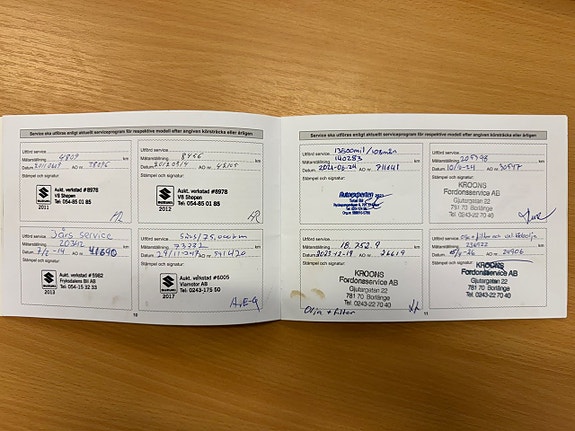 Service ska utföras enligt aktuellt serviceprogram för respektive modell efter angiven körsträcka eller årligen
Utförd service
Mätarställning 4809 km
Datum AO nr 78096
Stämpel och signatur:
Aukt. verkstad #8978
V8 Shopen
Tel. 054-85 01 85
SUZUKI
2011
Utförd service
Mätarställning 8456 km
Datum AO nr
Stämpel och signatur:
Aukt. verkstad #8978
V8 Shopen
Tel. 054-85 01 85
SUZUKI
2012
Utförd service 3års service
Mätarställning 20342 km
Datum 7/5-14 AO nr
Stämpel och signatur:
Aukt. verkstad #5982
Fryksdalens Bil AB
Tel. 054-15 32 33
SUZUKI
2013
Utförd service
Mätarställning 73782 km
Datum AO nr 541420
Stämpel och signatur:
Aukt. verkstad #6005
Vismotor AB
Tel. 0243-175 50
SUZUKI
2017
A.E-G
10
Service ska utföras enligt aktuellt serviceprogram för respektive modell efter angiven körsträcka eller årligen
Utförd service
Mätarställning 140283 km
Datum 2021-06-24 AO nr 711641
Stämpel och signatur:
Autoexperten
Utförd service
Mätarställning km
Datum AO nr 30547
Stämpel och signatur:
KROONS
Fordonsservice AB
Gjutargatan 22
781 70 Borlänge
Tel. 0243-22 70 40
Utförd service
Mätarställning 18.752.9 km
Datum 2023-12-19 AO nr 26619
Stämpel och signatur:
KROONS
Fordonsservice AB
Gjutargatan 22
781 70 Borlänge
Tel. 0243-22 70 40
Olja + filter
Utförd service
Mätarställning km
Datum AO nr
Stämpel och signatur:
KROONS
Fordonsservice AB
Gjutargatan 22
781 70 Borlänge
Tel. 0243-22 70 40
11